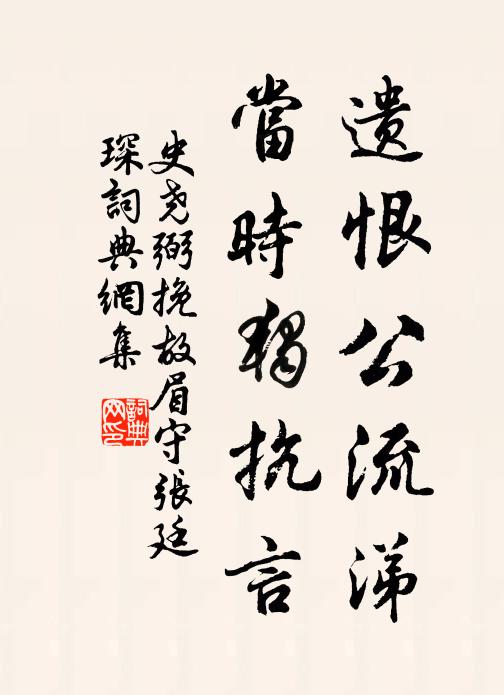 遺恨公流涕
當時獨抗言
史尧弼挽故眉守張廷
琛詞典網集
詞典
网印